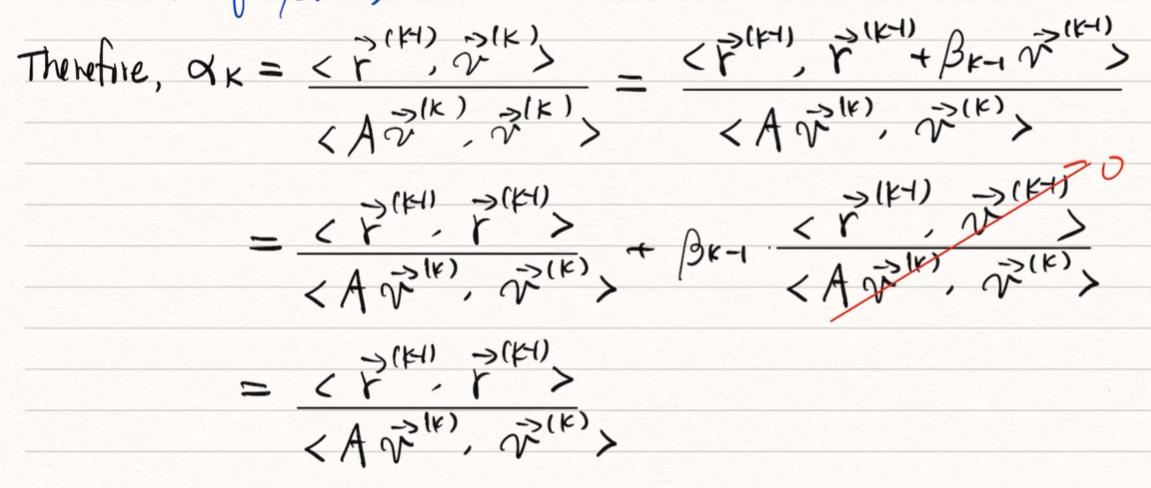 Therefire, αₖ = <r⃗^(k-1), v⃗^(k)> / <A v⃗^(k), v⃗^(k)> = <r⃗^(k-1), r⃗^(k-1) + βₖ₋₁ v⃗^(k-1)> / <A v⃗^(k), v⃗^(k)>
= <r⃗^(k-1), r⃗^(k-1)> / <A v⃗^(k), v⃗^(k)> + βₖ₋₁ · <r⃗^(k-1), v⃗^(k-1)> / <A v⃗^(k), v⃗^(k)> → 0
= <r⃗^(k-1), r⃗^(k-1)> / <A v⃗^(k), v⃗^(k)>